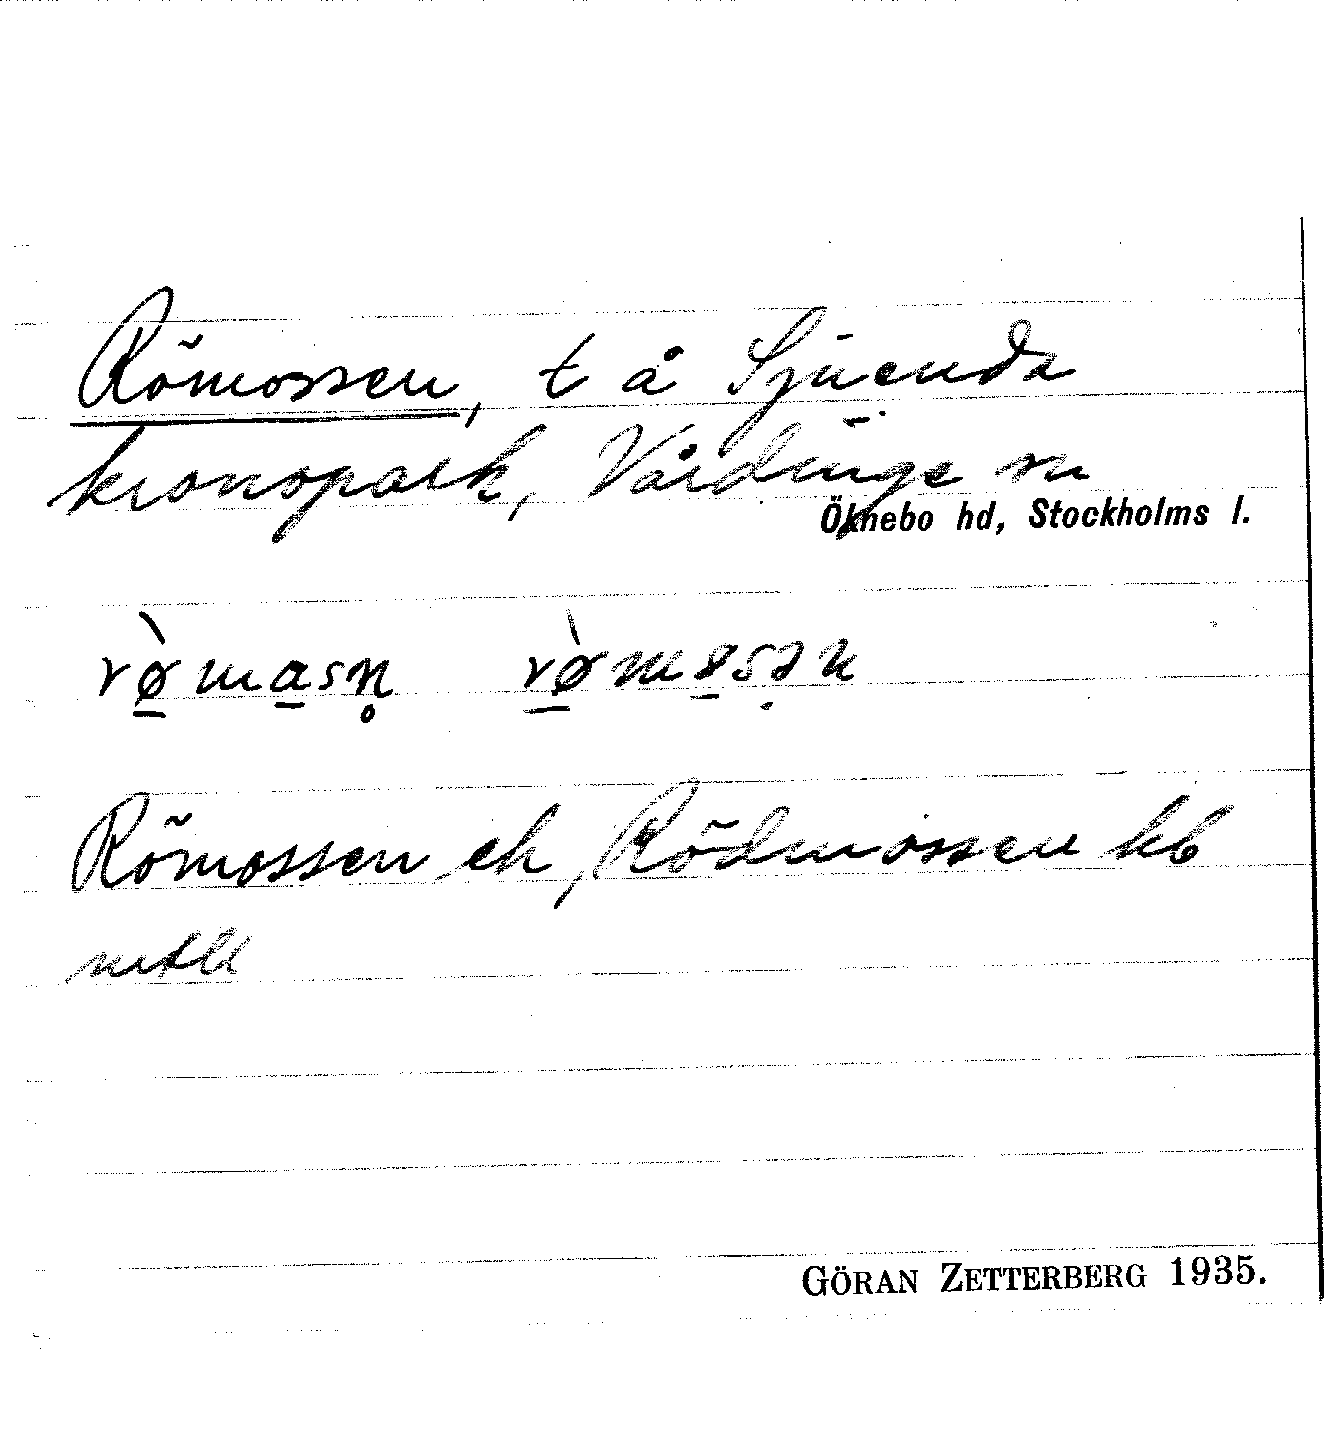 Römossen, t å Sjuenda
kronopark, Vårdinge sn
Öknebo hd, Stockholms l.
rø̀masn̥ rø̀mɵsən
Römossen ek, Rödmossen kb
GÖRAN ZETTERBERG 1935.